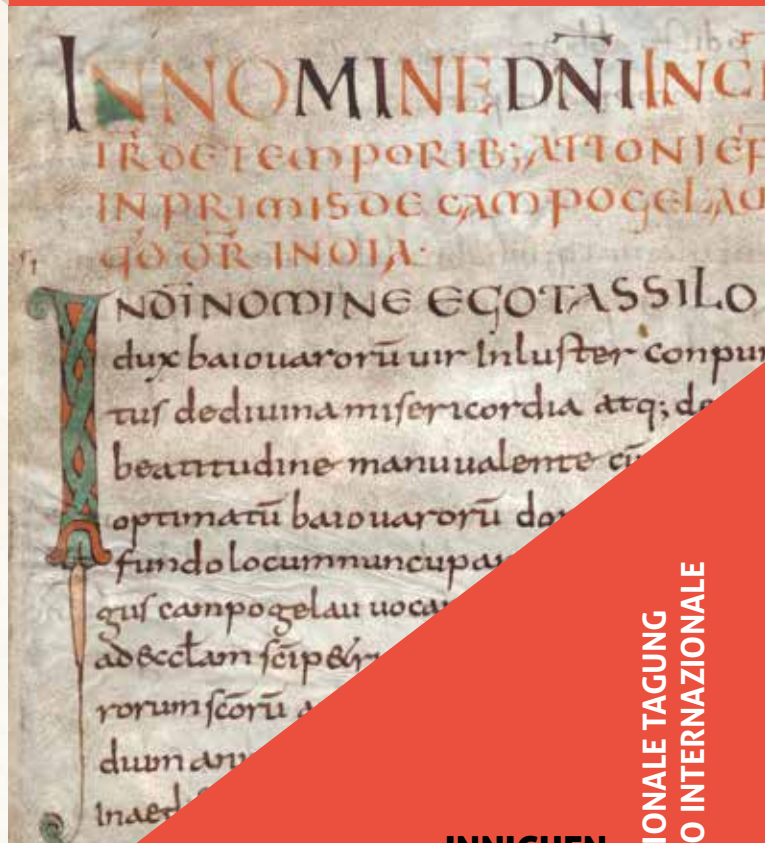 IN NOMINE DN̄I INCI
IR DE TEMPORIB; ATTONI EP
IN PRIMIS DE CAMPOGELAU
QD OR̄ INDIA·
IN DĪ NOMINE EGO TASSILO
dux baiouuarorū uir Inluster conpun
tus de diuina misericordia atq; de
beatitudine manu ualente cū
optimatū baiouuarorū do
fundo locum nuncupa
gus campogelau uoca
ad eccłam sc̄i pe&r
rorum sc̄orū a
dum an
Inaed
IONALE TAGUNG
O INTERNAZIONALE
INNICHEN